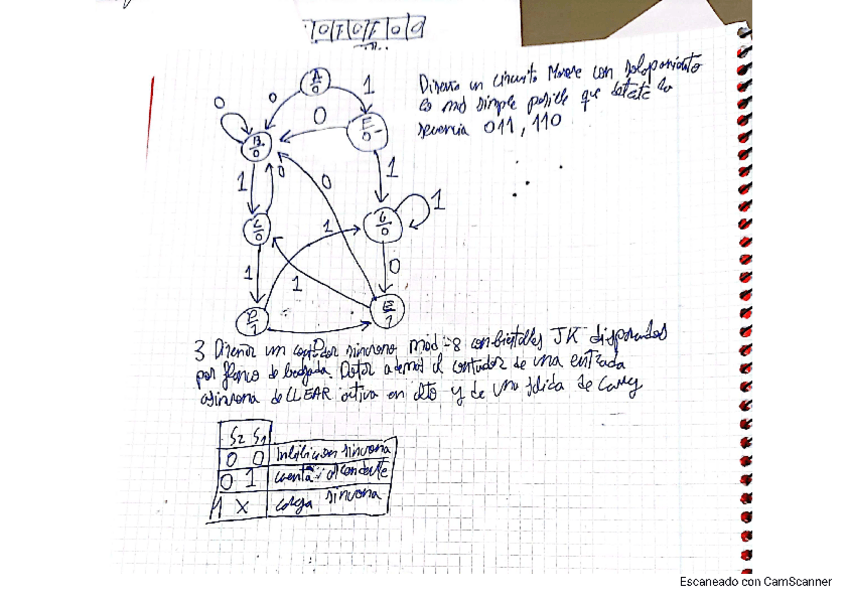 A
0
0
1
0
0
B
0
F
0
1
0
0
1
C
0
1
G
0
1
1
1
0
D
1
E
1
Diseñar un circuito Moore con solapamiento
lo más simple posible que detecte la
secuencia 011, 110
3 Diseñar un contador síncrono mod-8 con biestables JK disparados
por flanco de bajada. Dotar además al contador de una entrada
asíncrona de CLEAR activa en alto y de una salida de Carry
S2 S1
0 0 Inhibición síncrona
0 1 cuenta
1 X carga síncrona
Escaneado con CamScanner